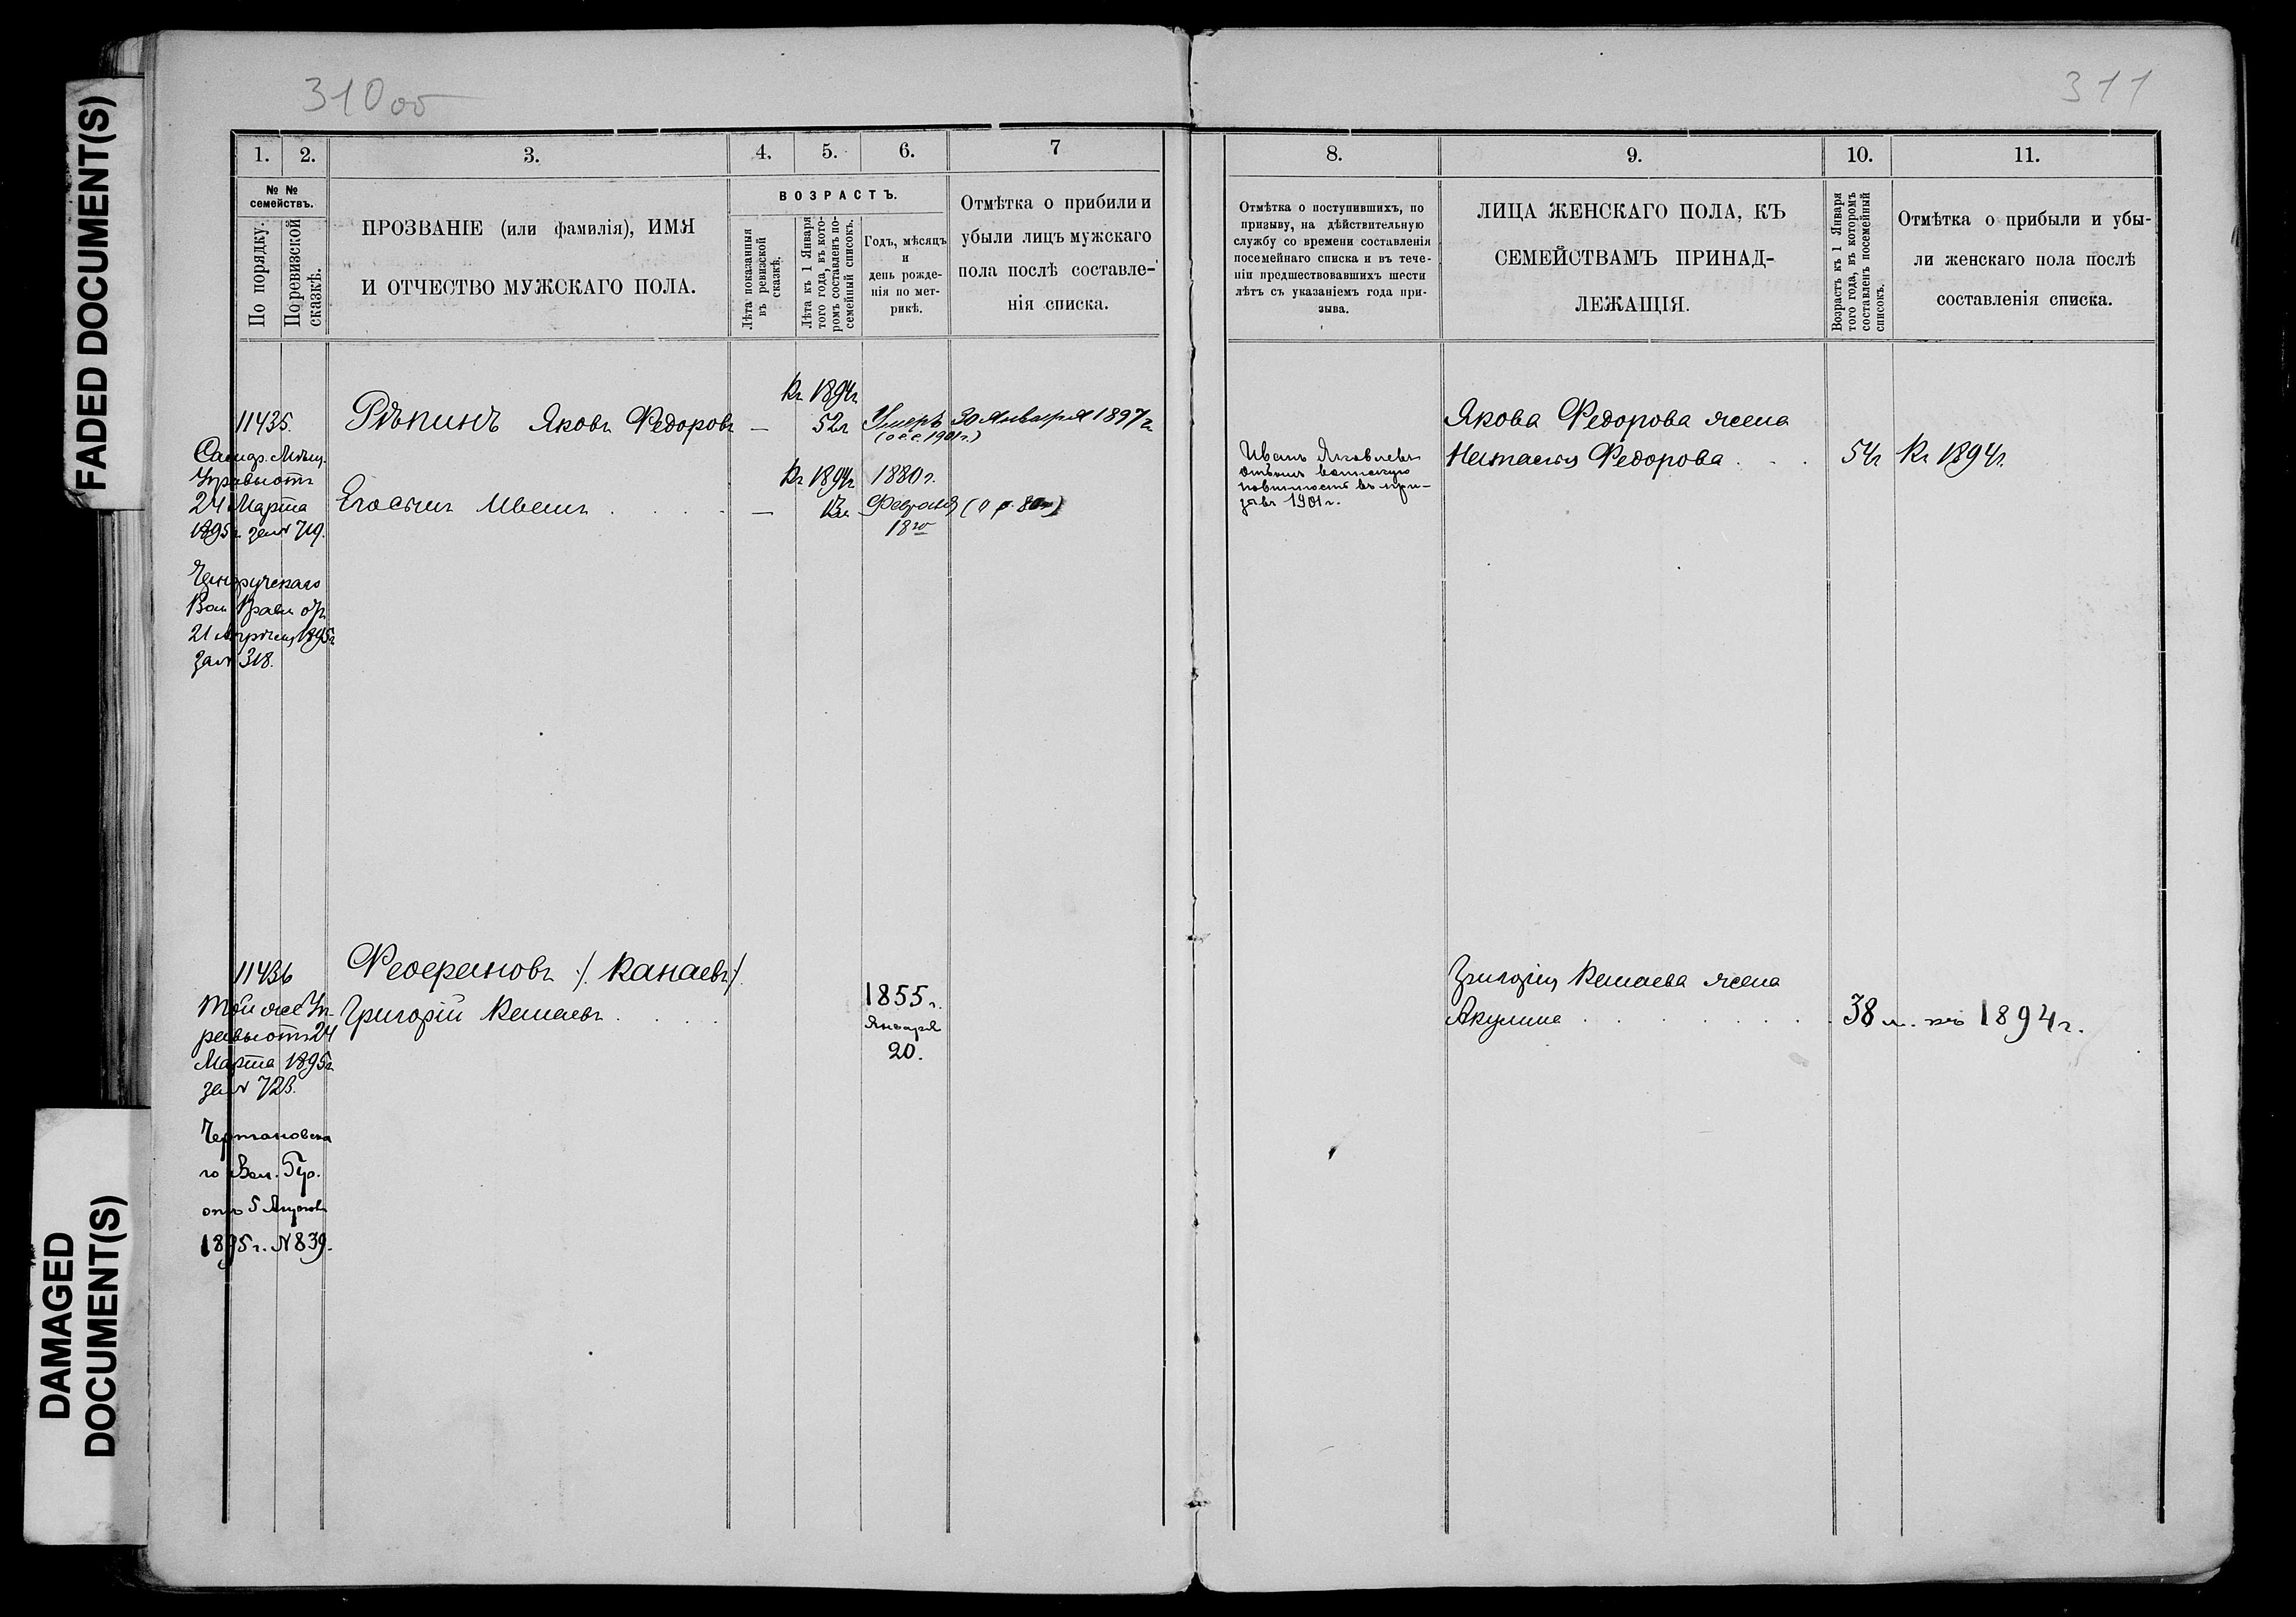 FADED DOCUMENT(S)
DAMAGED
DOCUMENT(S)
310 об
1.
2.
3.
4.
5.
6.
7
№ №
семействъ.
По порядку.
По ревизской
сказкѣ.
ПРОЗВАНІЕ (или фамилія), ИМЯ
И ОТЧЕСТВО МУЖСКАГО ПОЛА.
ВОЗРАСТЪ.
Лѣта показанныя
въ ревизской
сказкѣ.
Лѣта къ 1 Января
того года, въ кото-
ромъ составленъ по-
семейный списокъ.
Годъ, мѣсяцъ
и
день рожде-
нія по мет-
рикѣ.
Отмѣтка о прибыли и
убыли лицъ мужскаго
пола послѣ составле-
нія списка.
11435.
Мѣщ.
Управы отъ
24 Марта
1895 г. за № 719.
Вол. Правл. отъ
21 Апрѣля 1895 г.
за № 318.
Рѣпинъ Яковъ Федоровъ —
къ 1894 г.
52 г.
Умеръ 30 Января 1897 г.
Его сынъ Иванъ . . . . —
къ 1894 г.
13 л.
1880 г.
Февраля
18го
11436
Той же Уп-
равы отъ 24
Марта 1895 г.
за № 723.
Чертановска
го Вол. Пр.
отъ 5 Апрѣля
1895 г. № 839.
Федерановъ /: Канаевъ :/.
Григорій Канаевъ . . . .
1855 г.
Января
20.
311
8.
9.
10.
11.
Отмѣтка о поступившихъ, по
призыву, на дѣйствительную
службу со времени составленія
посемейнаго списка и въ тече-
ніи предшествовавшихъ шести
лѣтъ съ указаніемъ года при-
зыва.
ЛИЦА ЖЕНСКАГО ПОЛА, КЪ
СЕМЕЙСТВАМЪ ПРИНАД-
ЛЕЖАЩІЯ.
Возрастъ къ 1 Января
того года, въ которомъ
составленъ посемейный
списокъ.
Отмѣтка о прибыли и убы-
ли женскаго пола послѣ
составленія списка.
Иванъ Яковлевъ
отбылъ воинскую
повинность въ при-
зывъ 1901 г.
Якова Федорова жена
Настасья Федорова . . .
54 г.
къ 1894 г.
Григорія Канаева жена
Акулина . . . . . . . .
38 л. къ 1894 г.